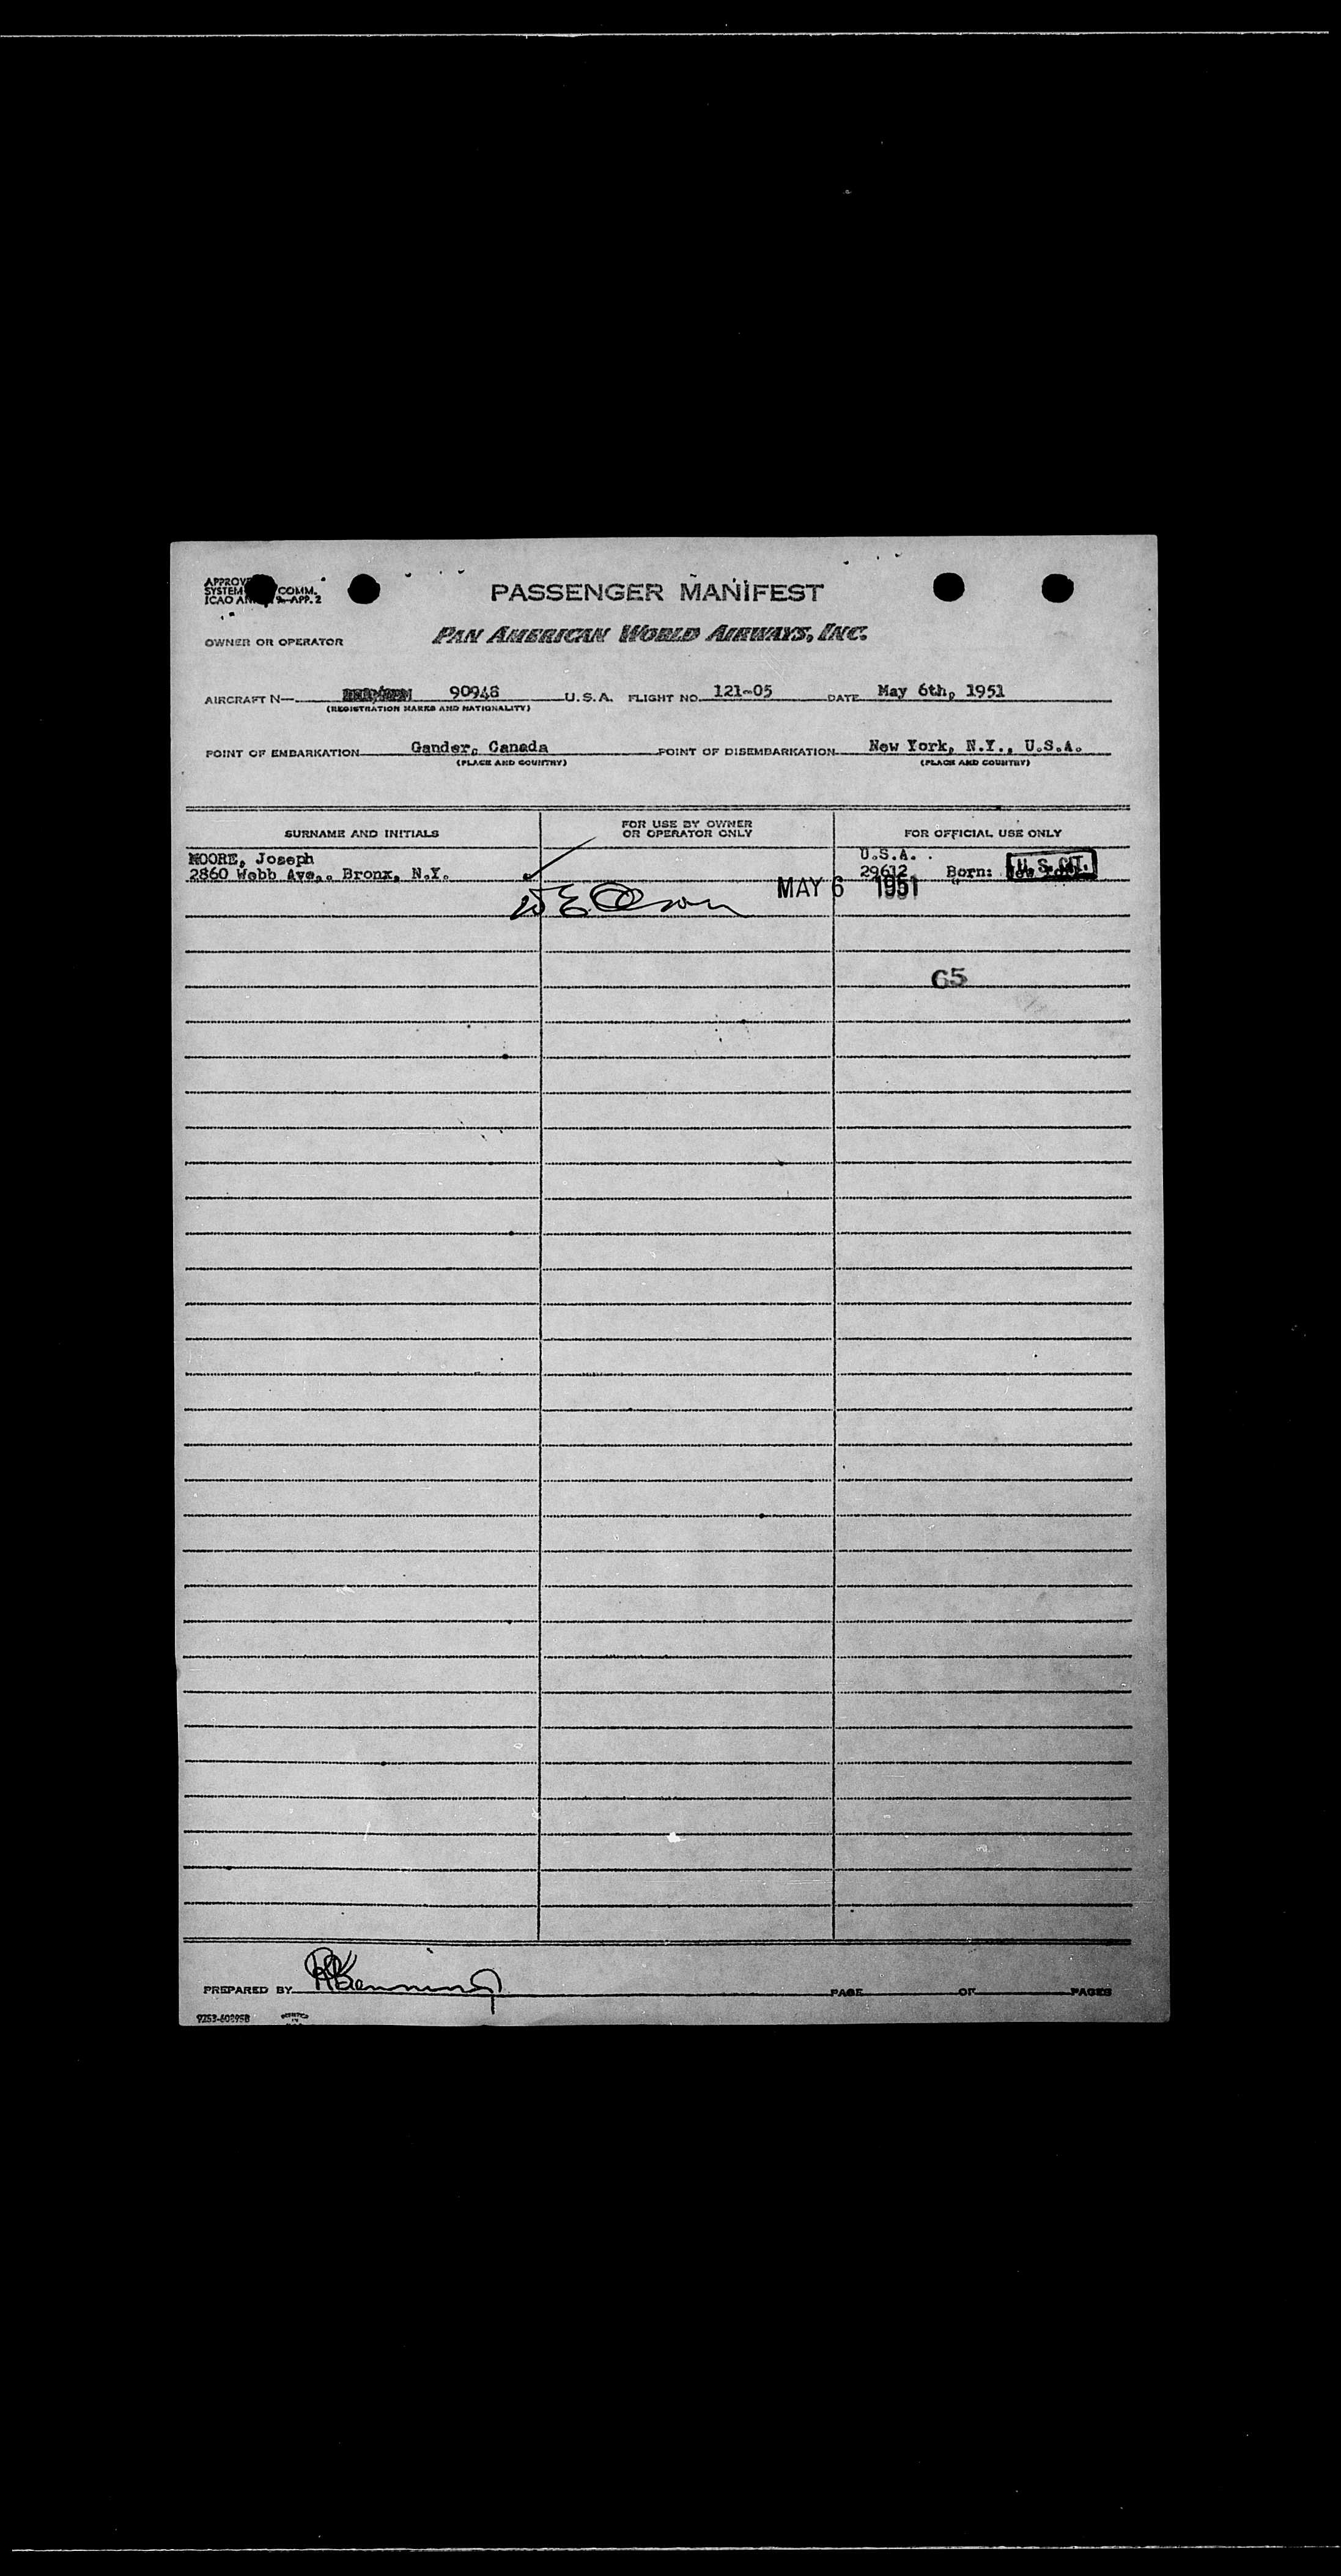 PASSENGER MANIFEST
SYSTEM COMM.
ICAO 9—APP. 2
OWNER OR OPERATOR PAN AMERICAN WORLD AIRWAYS, INC.
AIRCRAFT N— 90948 U.S.A. FLIGHT NO. 121-05 DATE May 6th, 1951
(REGISTRATION MARKS AND NATIONALITY)
POINT OF EMBARKATION Gander, Canada POINT OF DISEMBARKATION New York, N.Y., U.S.A.
(PLACE AND COUNTRY) (PLACE AND COUNTRY)
SURNAME AND INITIALS FOR USE BY OWNER OR OPERATOR ONLY FOR OFFICIAL USE ONLY
MOORE, Joseph U.S.A.
2860 Webb Ave., Bronx, N.Y. 29612 Born: U.S. CIT.
MAY 6 1951
65
PREPARED BY PAGE OF PAGES